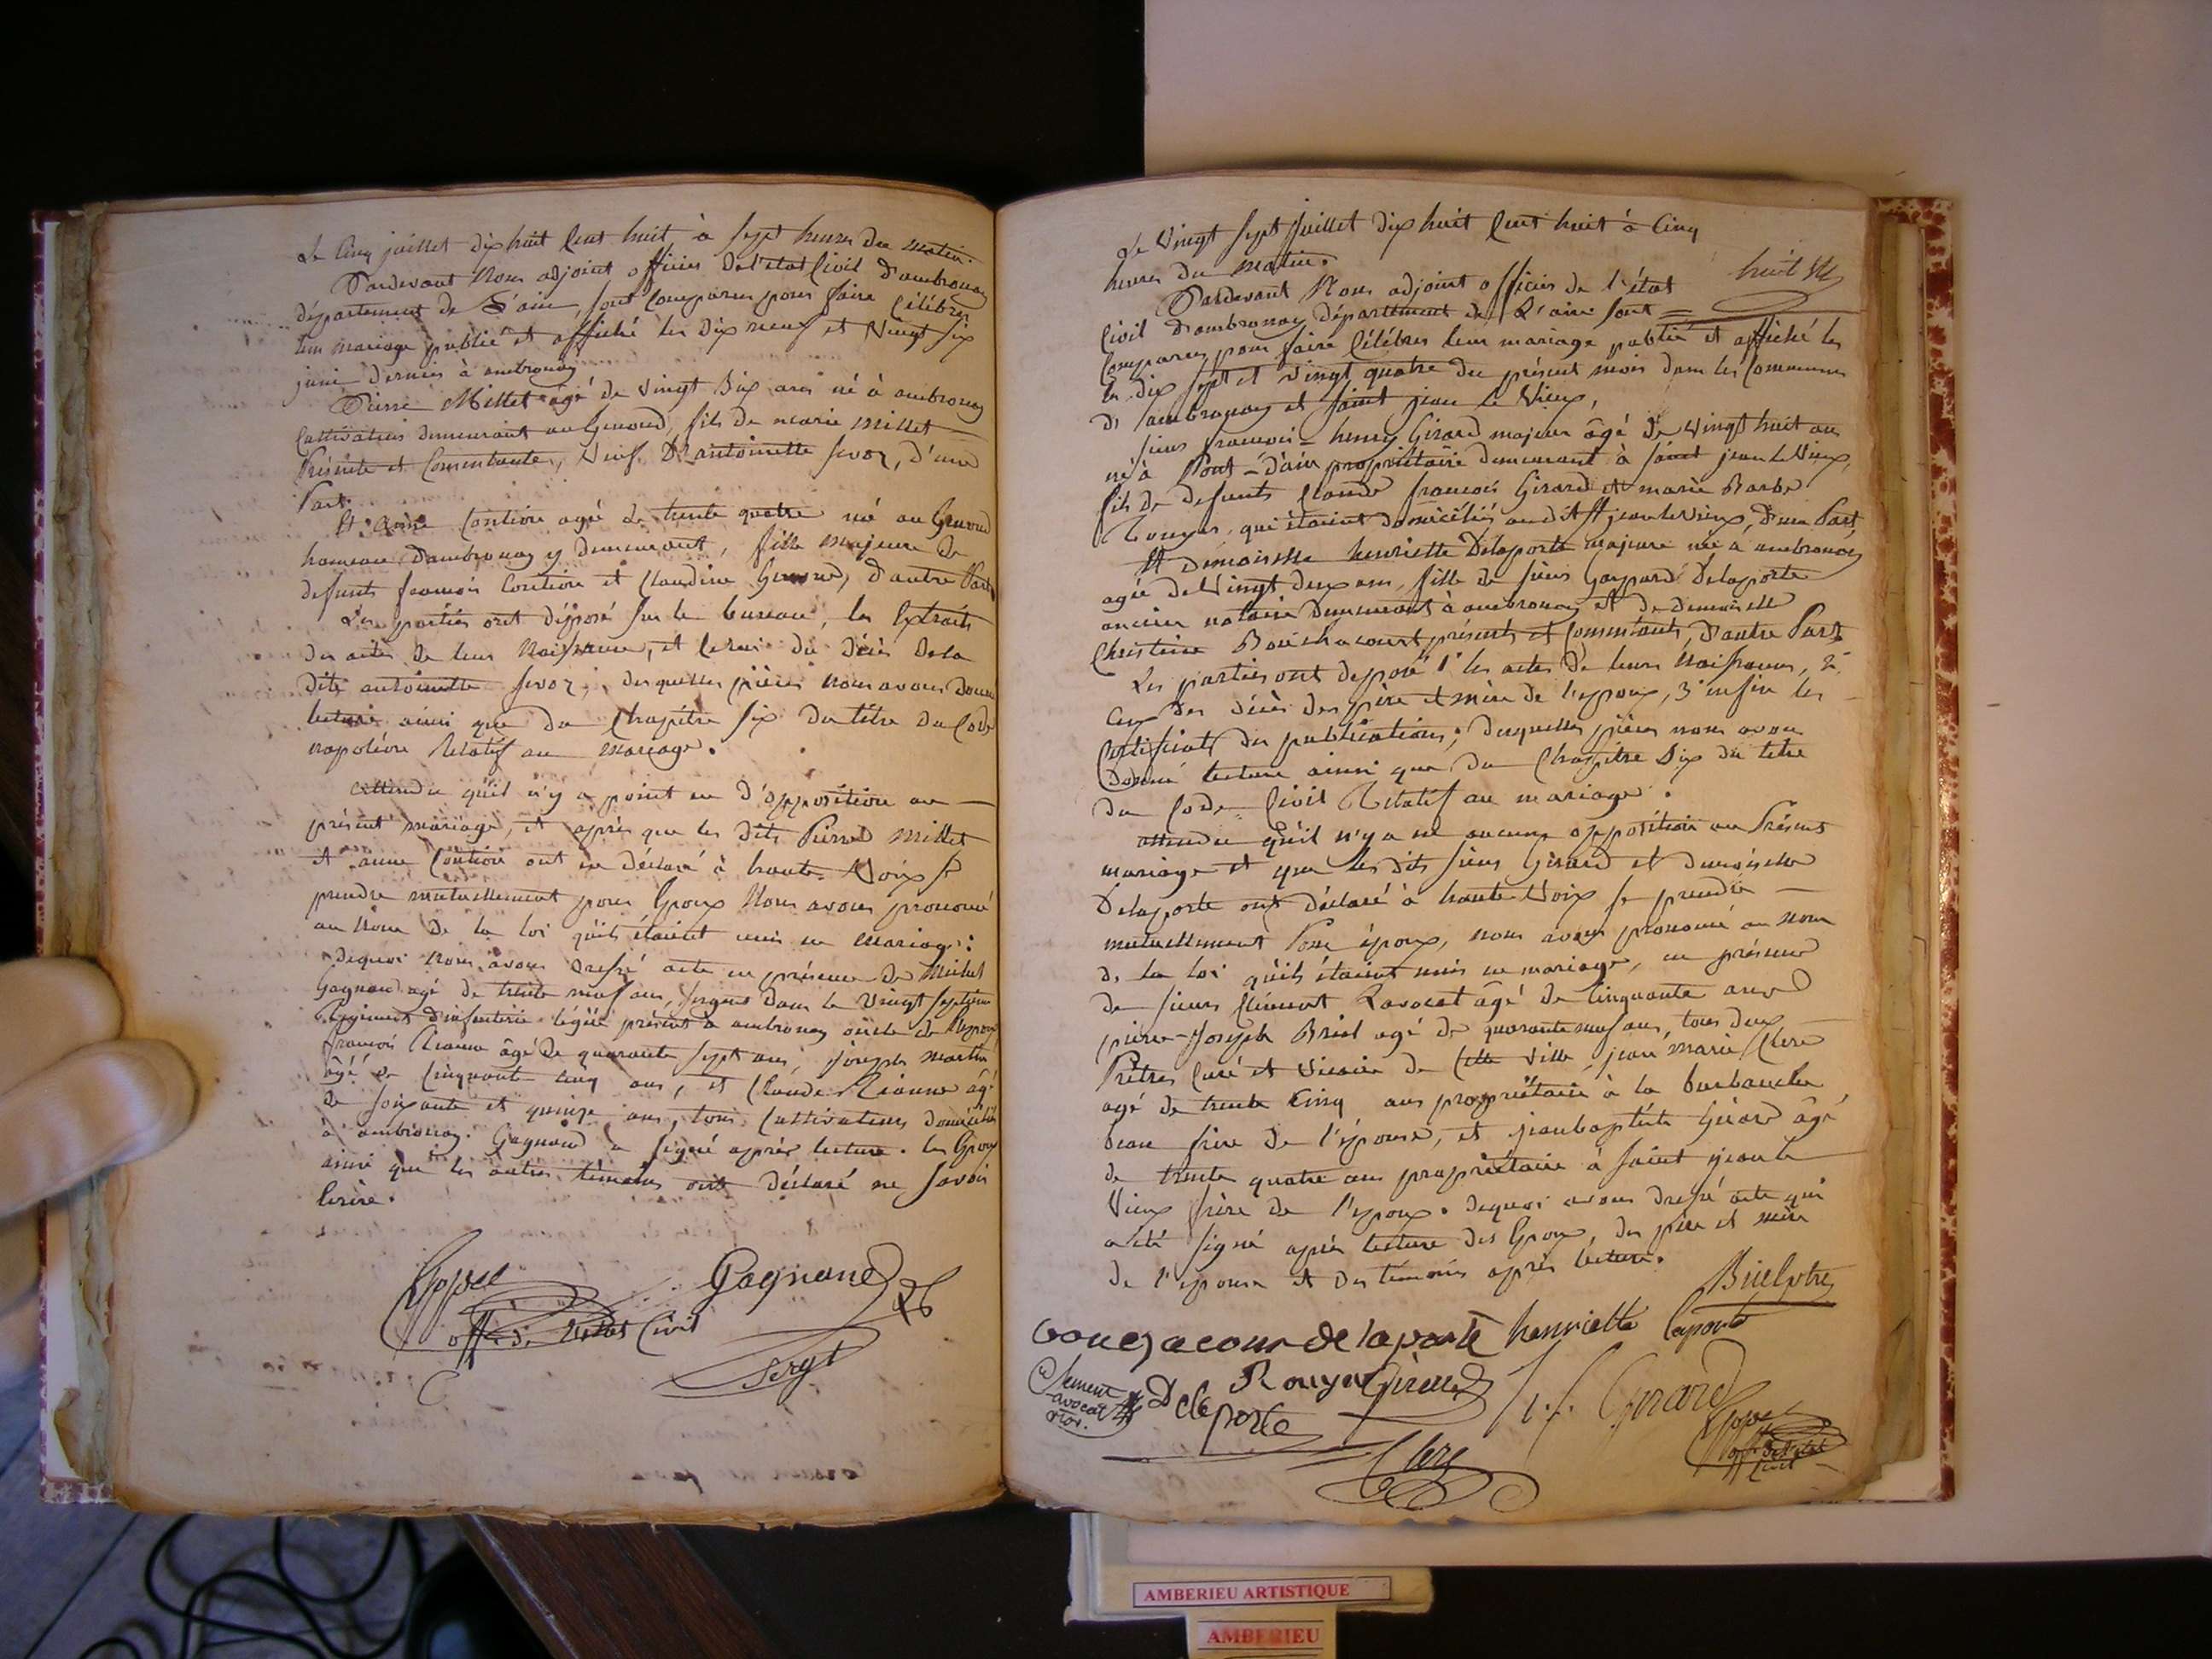 Le Cinq juillet dix huit Cent huit à Sept heures du matin.
Pardevant Nous adjoint officier de l'état Civil d'ambronay
département de L'ain, sont Comparus pour faire Célébrer
leur mariage publié et affiché les dix neuf et Vingt Six
juin dernier à ambronay
Pierre Millet agé de Vingt Six ans né à ambronay
Cultivateur demeurant au Genoud, fils de marie millet
Présente et Consentante, Veuf D'antoinette, d'une
Part.
Et anne agée de trente quatre né au Genoud
hameau d'ambronay y demeurant, fille majeure de
defunts françois et Claudine, d'autre Part
Les parties ont déposé sur le bureau, les Extraits
des actes de leur Naissance, et celui du décès de la
dite antoinette, desquelles pièces nous avons donné
lecture ainsi que du Chapitre Six du titre du Code
napoléon Relatif au mariage.
attendu qu'il n'y a point eu d'opposition au
présent mariage, et après que les dits Pierre millet
et anne ont eu déclaré à haute Voix se
prendre mutuellement pour Epoux Nous avons prononcé
au Nom de la loi qu'ils étaient unis en mariage:
dequoi Nous avons dressé acte en présence de Michel
Gagnand agé de trente neuf ans, sergent dans le Vingt Septième
Régiment d'infanterie légère présent à ambronay oncle de l'Epoux
françois âgé de quarante Sept ans, joseph martin
âgé de Cinquante Cinq ans, et Claude âgé
de soixante et quinze ans, tous Cultivateurs domiciliés
à ambronay. Gagnand a signé après lecture. les Epoux
ainsi que les autres témoins ont déclaré ne savoir
Ecrire.
Gagnand
off. de l'Etat Civil
Sergt
Le Vingt Sept Juillet dix huit Cent huit à Cinq
heures du matin.
huit
Pardevant Nous adjoint officier de l'état
Civil d'ambronay département de L'ain sont =
Comparus pour faire Célébrer leur mariage publié et affiché les
les dix sept et vingt quatre du présent mois dans les Communes
d'ambronay et saint jean le Vieux,
sieur françois = henry Girard majeur âgé de vingt huit ans
né à Pont = d'ain propriétaire demeurant à saint jean le Vieux,
fils de defunts Claude françois Girard et marie Barbe
Rouyer, qui étaient domiciliés audit St jean le Vieux, d'une Part,
Et demoiselle henriette Delaporte majeure née à ambronay
agée de Vingt deux ans, fille de sieur Gaspard Delaporte
ancien notaire demeurant à ambronay et de demoiselle
Christine Bouchacourt présents et Consentants, d'autre Part
Les parties ont deposé 1° les actes de leurs Naissances, 2°
Ceux des décès des père et mère de l'epoux, 3° enfin les
Certificats des publications; desquelles pièces nous avons
Donné lecture ainsi que du Chapitre Six du titre
du Code Civil Relatif au mariage.
attendu qu'il n'y a eu aucune opposition au Présent
mariage et que les dits sieur Girard et demoiselle
Delaporte ont déclaré à haute Voix se prendre
mutuellement Pour époux, nous avons prononcé au nom
de la loi qu'ils étaient unis en mariage, en présence
de sieurs Clément Lavocat âgé de Cinquante ans
pierre-Joseph Briel agé de quarante neuf ans, tous deux
Prêtres Curé et Vicaire de Cette Ville, jean marie Clerc
agé de trente Cinq ans propriétaire à la
beau frère de l'épouse, et jean baptiste Girard âgé
de trente quatre ans propriétaire à saint jean le
Vieux frère de l'epoux. dequoi avons dressé acte qui
a été signé après lecture des Epoux, des père et mère
de l'epouse et des témoins après lecture.
de laporte henriette Laporte
Clement
avocat
Delaporte
Rouyer Girard
Girard
Clerc
off. de l'état
Civil
AMBERIEU ARTISTIQUE
AMBERIEU